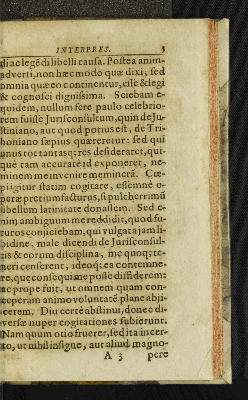 INTERPRES. 5
di ac legẽdi libelli causa. Postea anim-
adverti, non hæc modo quæ dixi, sed
omnia quæ eo continentur, esse & legi
& cognosci dignissima. Sciebam e-
quidem, nullum fere paulo celebrio-
rem fuisse Jurisconsultum, quin de Ju-
stiniano, aut quod potius est, de Tri-
boniano sæpius quæreretur: sed qui
unus tot tantasq; res desideraret, qui-
que tam accurate id exponeret, ne-
minem me invenire memineram. Cœ-
pi igitur statim cogitare, essemne o-
peræ pretium facturus, si pulcherrimũ
libellum latinitate donassem. Sed o-
nim ambiguum me reddidit, quod fu-
turos conjiciebam, qui vulgata jam li-
bidine, male dicendi de Jurisconsul-
tis & eorum disciplina, me quoq; te-
neri censerent, ideoq; ea contemne-
re, quæ consequi me posse diffiderem:
ac prope fuit, ut omnem quam con-
ceperam animo voluntatẽ plane abji-
cerem. Diu certè abstinui, donec di-
versæ nuper cogitationes subierunt.
Nam quum otio fruerer, sed ita incer-
to, ut nihil insigne, aut aliud magno-
A 3 pere